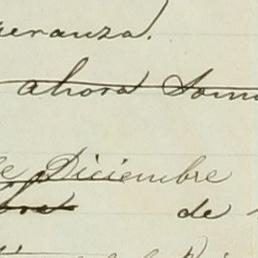 eranza.
ahora Som
e Diciembre
de